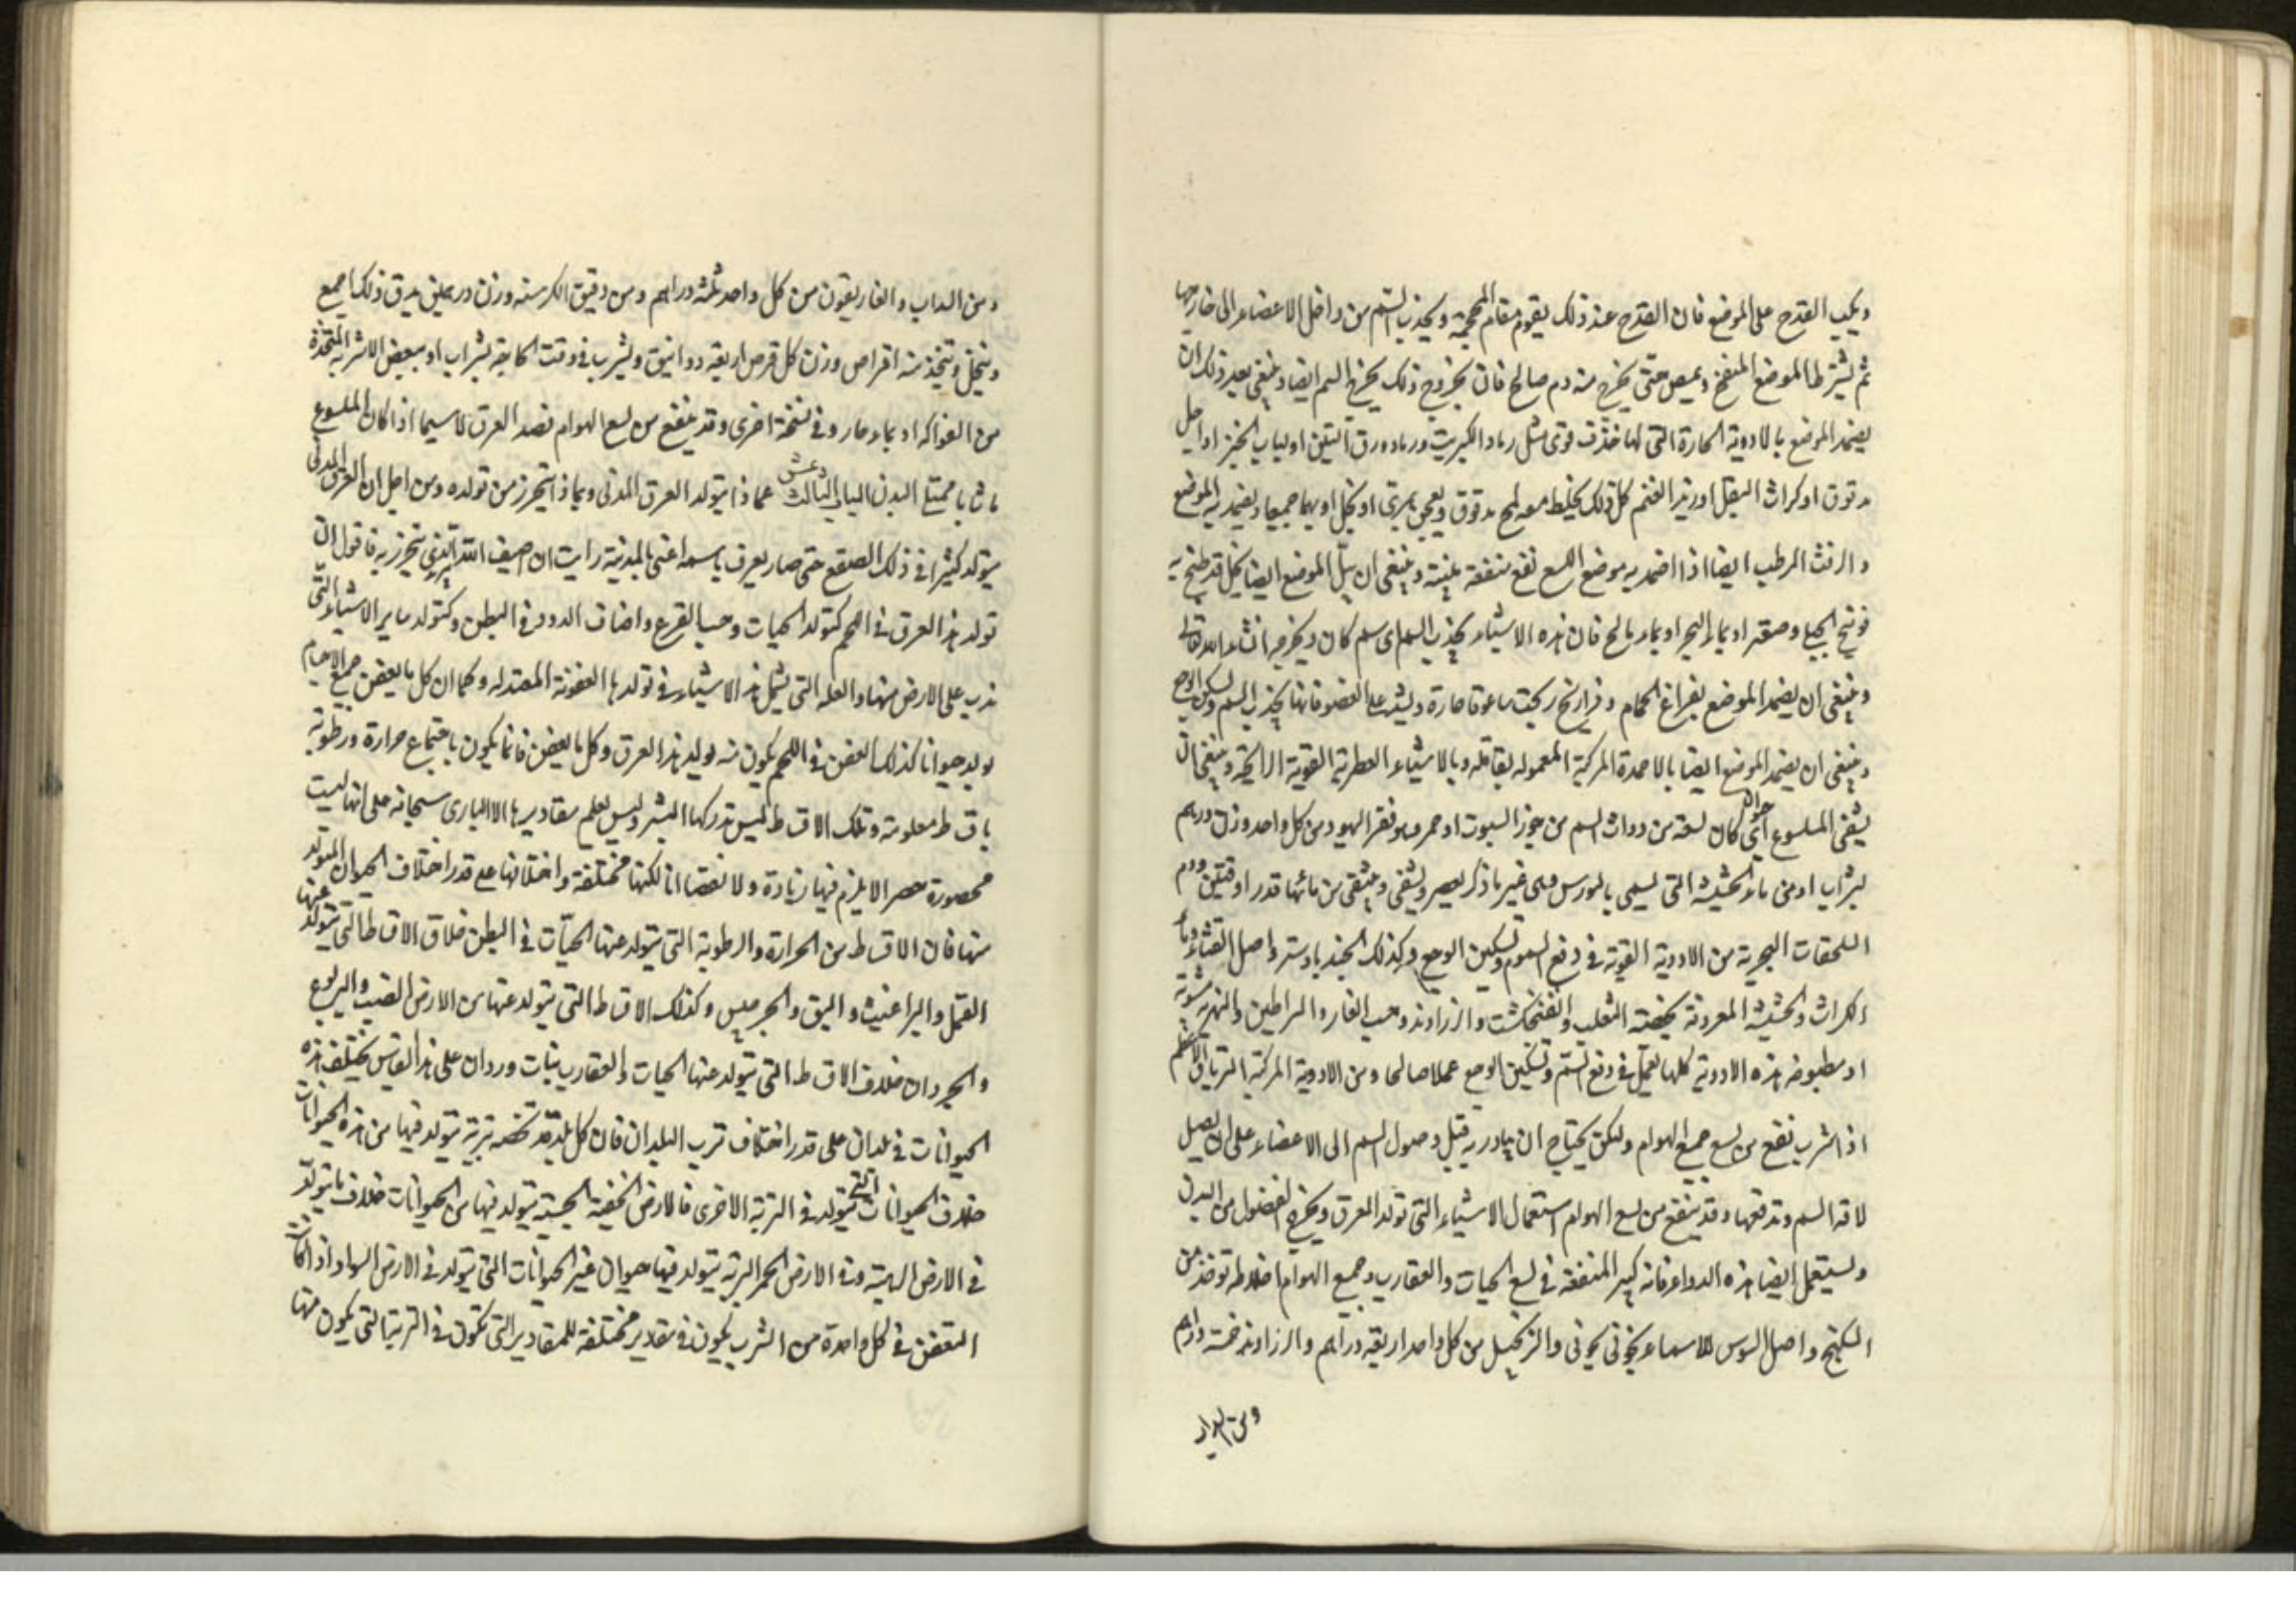 ويكب القدح على الموضع فان القدح عند ذلك يقوم مقام المحجمة ويجذب السم من داخل الاعضاء الى خارجها
ثم يشترط الموضع المنتفخ ويمص حتى يخرج منه دم صالح فان بخروج ذلك يخرج السم ايضا وينبغي بعد ذلك ان
يضمد الموضع بالادوية الحارة التي لها قوى مثل رماد الكبريت ورماد ورق التين او لباب الخبز او اصل
مدقوق او كراث البقل او زبد الغنم كل ذلك يخلط معه ملح مدقوق ويعجن بمرى او بخل او بهما جميعا ويضمد به الموضع
والزفت الرطب ايضا اذا اضمد به موضع اللسع نفع منفعة بينة وينبغي ان يبل الموضع ايضا بخل قد طبخ به
فوتنج الجبلي وصعتر او بماء البحر او بماء مالح فان هذه الاشياء يجذب السم اى سم كان ويخرجه انشاء الله تعالى
وينبغي ان يضمد الموضع بفراخ الحمام وفراريخ ساعتها حارة على العضو فانها يجذب السم ويسكن الوجع
وينبغي ان يضمد الموضع ايضا بالاضمدة المركبة المعموله وبالاشياء العطرية القوية الرائحة وينبغي ان
يسقى الملسوع اى كان لسعه من ذوات السم من جوز السرو وقفر اليهود من كل واحد وزن درهم
بشراب او من ماء الحشيشة التي يسمى غير ما ذكر يعصر ويسقى من مائها قدر اوقيتين ودم
السلحفات البحرية من الادوية القوية في دفع السموم وتسكين الوجع وكذلك الجندبادستر واصل القثاء وماء
الكراث والحشيشة المعروفة بخصية الثعلب والفنجنكشت والزراوند وحب الغار والسراطين النهرية مشوية
او مطبوخة هذه الادوية كلها تعمل في دفع السم وتسكين الوجع عملا صالحا ومن الادوية المركبة الترياق الاعظم
اذا شرب نفع من لسع جميع الهوام ولكن يحتاج ان يبادر به قبل وصول السم الى الاعضاء على ان يصل
لاقه السم وتدفعها وقد ينتفع من لسع الهوام استعمال الاشياء التي تولد العرق ويخرج الفضول من البدن
ويستعمل ايضا هذه الدواء فانه كبير المنفعة في لسع الحيات والعقارب وجميع الهوام اخلاطه توخذ من
السكبينج واصل السوسن الاسمانجوني والزنجبيل من كل واحد اربعة دراهم والزراوند خمسة دراهم
ومن السداب
ومن السداب والغاريقون من كل واحد ثلثه دراهم ومن دقيق الكرسنه وزن درهمين يدق ذلك اجمع
وينخل ويتخذ منه اقراص وزن كل قرص اربعة دوانيق ويشرب في وقت الحاجة بشراب او ببعض الاشربة المتخذة
من الفواكه او بماء حار وفي نسخة اخرى وقد ينتفع من لسع الهوام فصد العرق لاسيما اذا كان الملسوع
شابا ممتلئ البدن الباب الثالث عشر مما ذا يتولد العرق المدنى وبماذا يتحرز من تولده ومن اجل ان العرق المدنى
يتولد كثيرا في ذلك الصقع حتى صار يعرف باسمه اعنى بالمدينة رايت ان اصيف الذي يتحرز به فاقول ان
تولد هذا العرق في اللحم كتولد الحيات وحب القرع واصناف الدود في البطن وكتولد ساير الاشياء التي
تدب على الارض منها والعله التي يشمل هذه الاشياء في تولدها العفونة المعتدله وكما ان كل ما يعفن جميع الاجسام
يولد حيوانا كذلك العفن في اللحم يكون منه يوليد هذا العرق وكل ما يعفن فانما يكون باجتماع حرارة ورطوبة
باقساط معلومة وتلك الاقساط ليس تدركها البشر وليس يعلم مقاديرها الا البارى سبحانه على انها ليست
محصورة حصرا لا يلزم فيها زيادة ولا نقصانا لكنها مختلفة واختلافها على قدر اختلاف الحيوان المتولد
منها فان الاقساط من الحرارة والرطوبة التي يتولد عنها الحيات في البطن خلاف الاقساط التي يتولد عنها
القمل والبراغيث والبق والجرجيس وكذلك الاقساط التي يتولد عنها من الارض الضب واليربوع
والجرذان خلاف الاقساط التي يتولد عنها الحيات والعقارب وبنات وردان على هذا القياس يختلف هذه
الحيوانات في بلدان على قدر اختلاف ترب البلدان فان كل بلد قد تخصه تربة يتولد فيها من هذه الحيوانات
خلاف الحيوانات التي يتولد في التربة الاخرى فالارض الخفيفة يتولد فيها من الحيوانات خلاف ما يتولد
في الارض وفي الارض الحمرا التربة يتولد فيها حيوان غير الحيوانات التي يتولد في الارض السوداء اذ كان
التعفن في كل واحدة من الترب يكون في مقادير مختلفة للمقادير التي تكون في التربة التي يكون منها